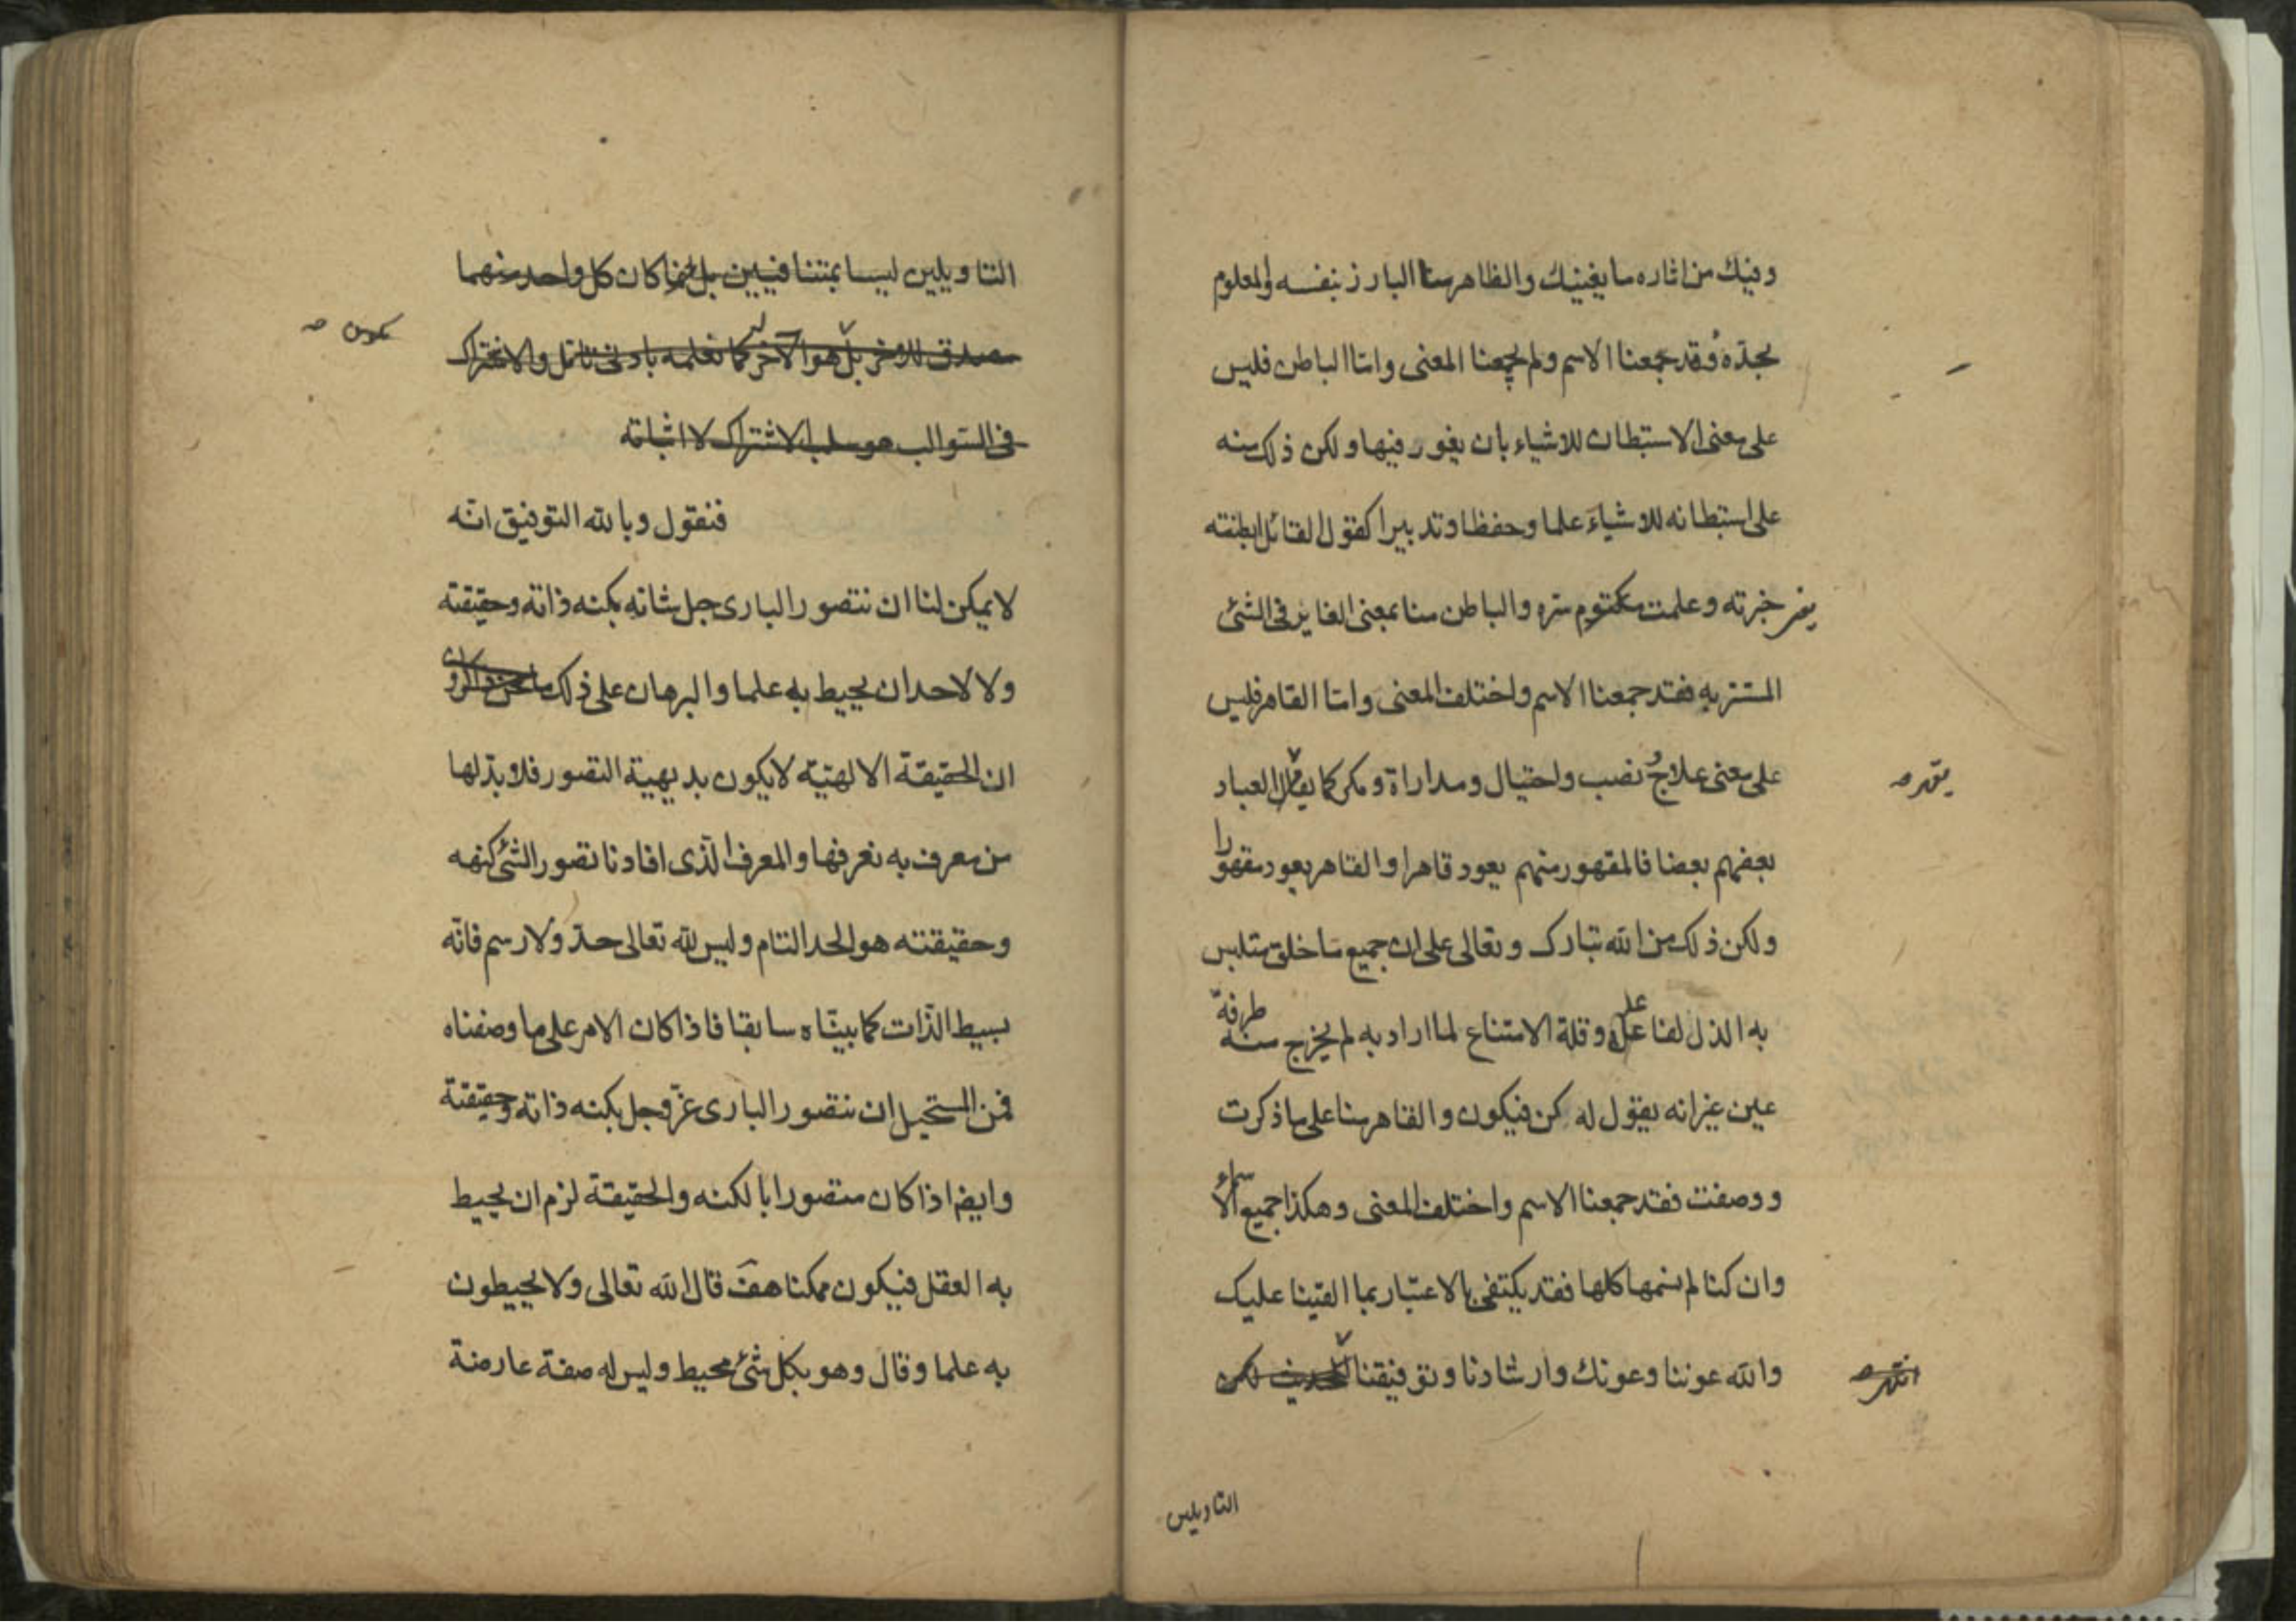 وفيك من اثاره ما يغنيك والظاهر منا البارز بنفسه والمعلوم
بحدّه فقد جمعنا الاسم ولم يجمعنا المعنى وامّا الباطن فليس
على معنى الاستبطان للاشياء بان يغور فيها ولكن ذلك منه
على استبطانه للاشياء علما وحفظا وتدبيرا كقول القائل ابطنته
يعنى خبرته وعلمت مكتوم سره والباطن منا بمعنى الغاير فى الشئ
المستتر به فقد جمعنا الاسم واختلف المعنى وامّا القاهر فليس
على معنى علاج ونصب واحتيال ومداراة ومكر كما العباد
يقهر صح
بعضهم بعضا فالمقهور منهم يعود قاهرا والقاهر يعود مقهورا
ولكن ذلك من الله تبارك وتعالى على ان جميع ما خلق متلبس
به الذل لفاعله وقلة الامتناع لما اراد به لم يخرج منه طرفة
عين غير انه يقول له كن فيكون والقاهر منا على ما ذكرت
ووصفت فقد جمعنا الاسم واختلف المعنى وهكذا جميع الاسماء
وان كنا لم نسمها كلها فقد يكتفى بالاعتبار بما القينا عليك
والله عوننا وعونك وارشادنا وتوفيقنا الحديث لكن
انتهى صح
التاويلين
التاويلين ليسا بمتنافيين بل كان كل واحد منهما
مصدق للاخر بل هو الآخر كما تعلمه بادنى تامّل والاشتراك
صح
فى السّوالب هو سلب الاشتراك لا اثباته
فنقول وبالله التوفيق انّه
لا يمكن لنا ان نتصور البارى جل شانه بكنه ذاته وحقيقته
ولا لاحد ان يحيط به علما والبرهان على ذلك
ان الحقيقة الالهيّة لا يكون بديهية التصور فلا بدّ لها
من معرف به نعرفها والمعرف الّذى افادنا تصور الشئ كنهه
وحقيقته هو الحد التام وليس لله تعالى حدّ ولا رسم فانّه
بسيط الذّات كما بيّناه سابقا فاذا كان الامر على ما وصفناه
فمن المستحيل ان نتصور البارى عزّ وجل بكنه ذاته وحقيقته
وايضا اذا كان متصورا بالكنه والحقيقة لزم ان يحيط
به العقل فيكون ممكنا هف قال الله تعالى ولا يحيطون
به علما وقال وهو بكل شئ محيط وليس له صفة عارضة